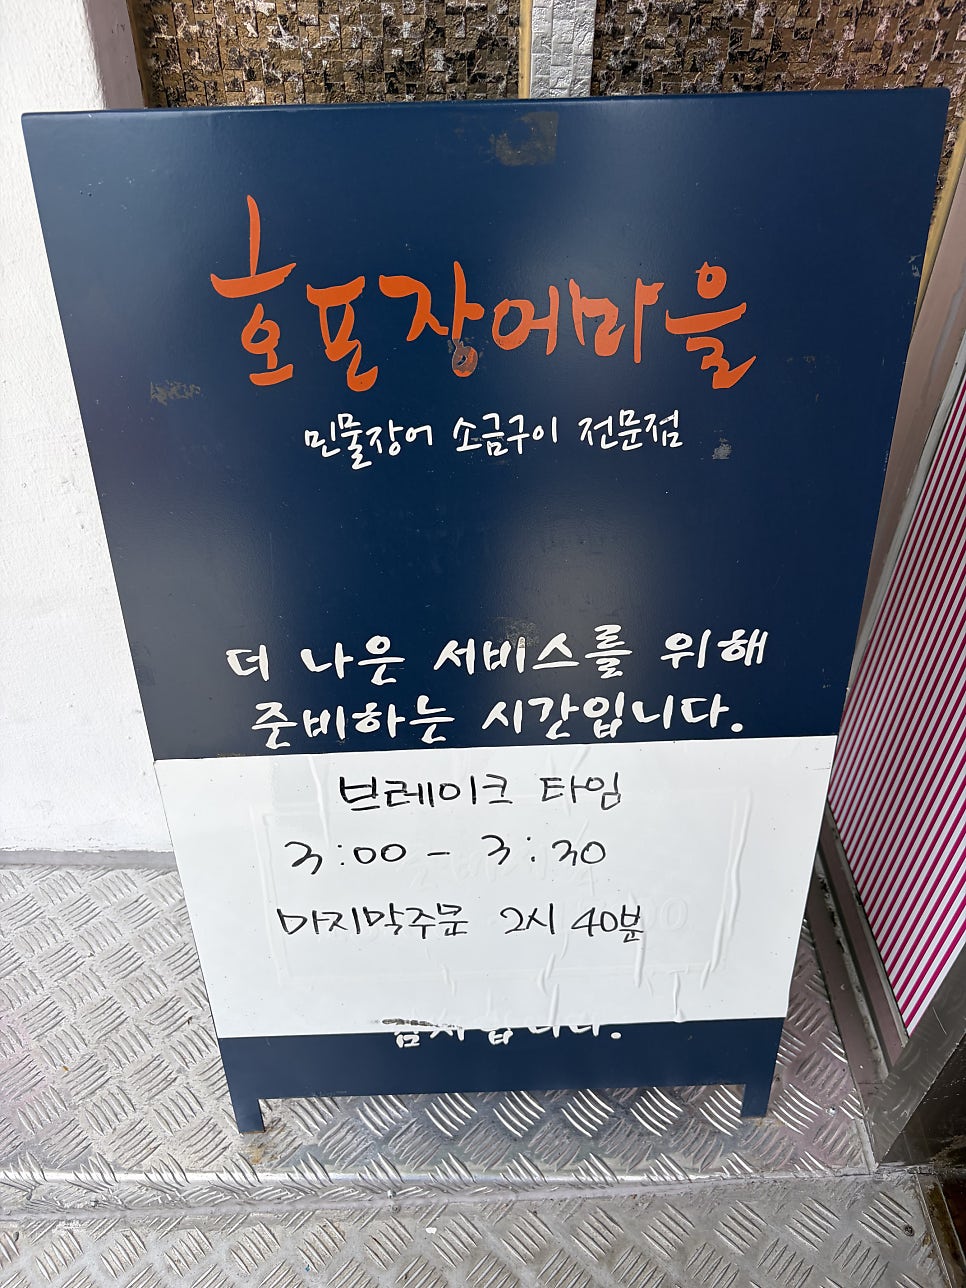 호포장어마을
민물장어 소금구이 전문점
더 나은 서비스를 위해
준비하는 시간입니다.
브레이크 타임
3:00 - 3:30
마지막주문 2시 40분
감사합니다.